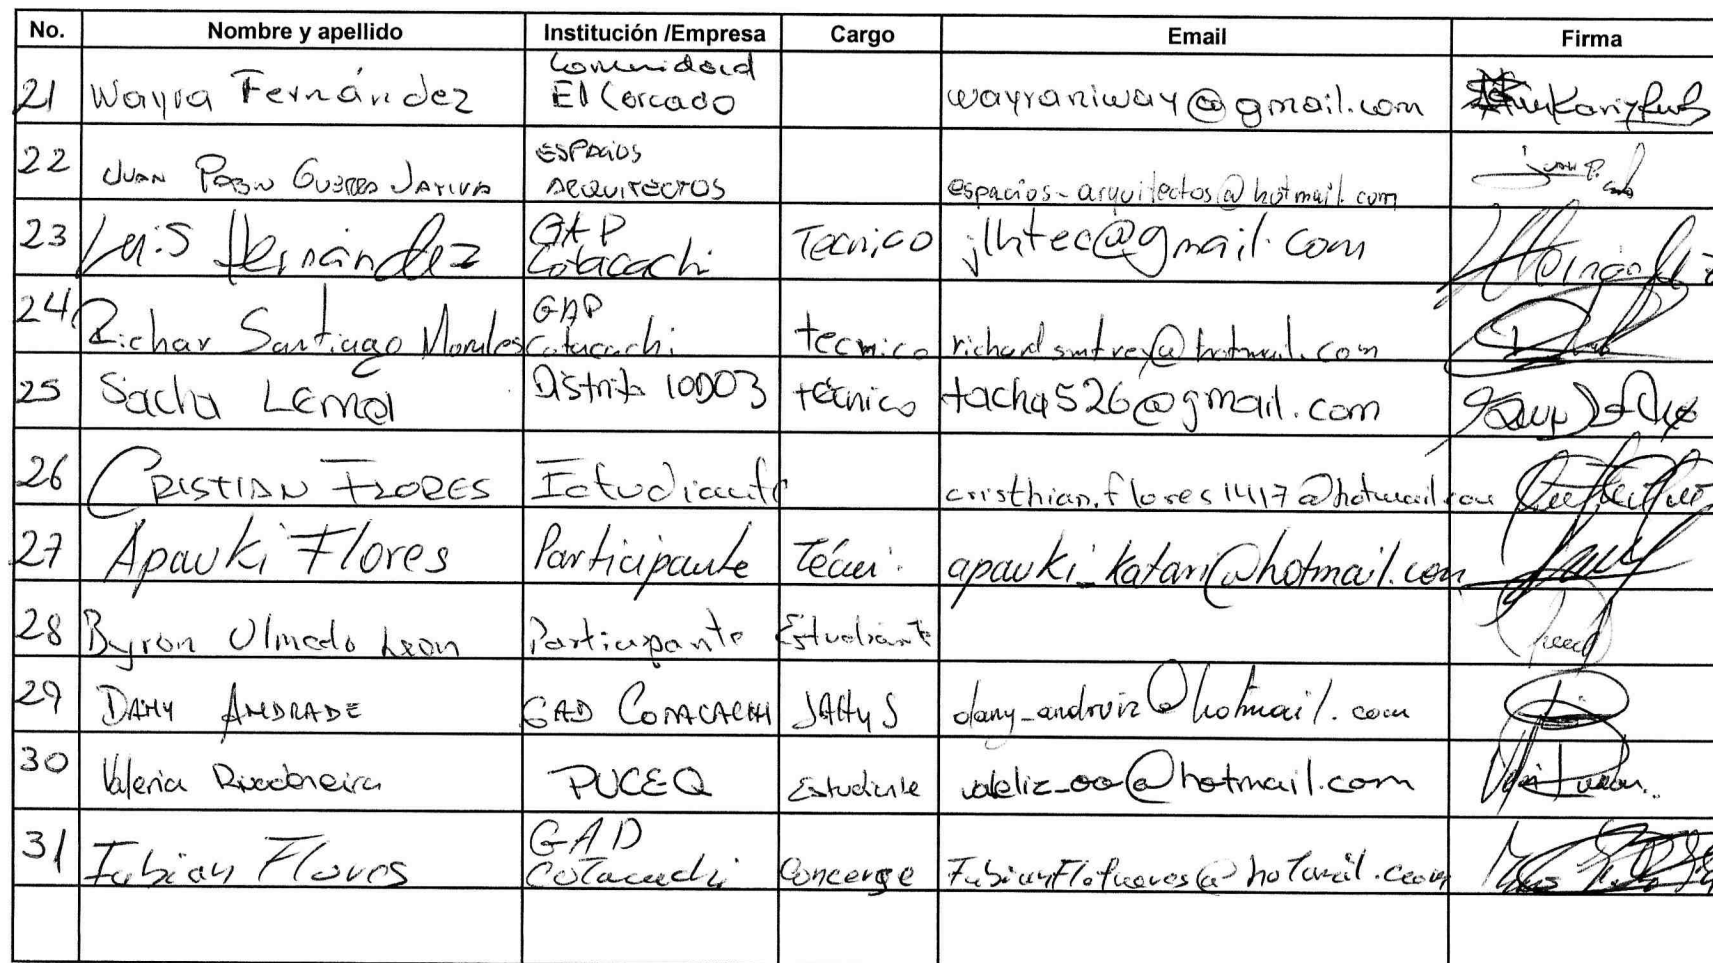 No. Nombre y apellido Institución /Empresa Cargo Email Firma
21 Wayra Fernández Comunidad El Cercado wayraniway@gmail.com
22 JUAN PABLO GUERRA JATIVA ESPACIOS ARQUITECTOS espacios-arquitectos@hotmail.com
23 Luis Hernández GAD Cotacachi Tecnico jlhtec@gmail.com
24 Richar Santiago Morales GAD Cotacachi tecnico
25 Sacha Lema Distrito 10D03 técnico tacha526@gmail.com
26 CRISTIAN FLORES Estudiante cristhian.flores1417@hotmail.com
27 Apauki Flores Participante Técni. apauki_katari@hotmail.com
28 Byron Olmedo Leon Participante Estudiante
29 DANY ANDRADE GAD COTACACHI dany-andruiz@hotmail.com
30 Valeria Rivadeneira PUCE Q Estudiante valeliz_oo@hotmail.com
31 Fabian Flores GAD Cotacachi Concerge